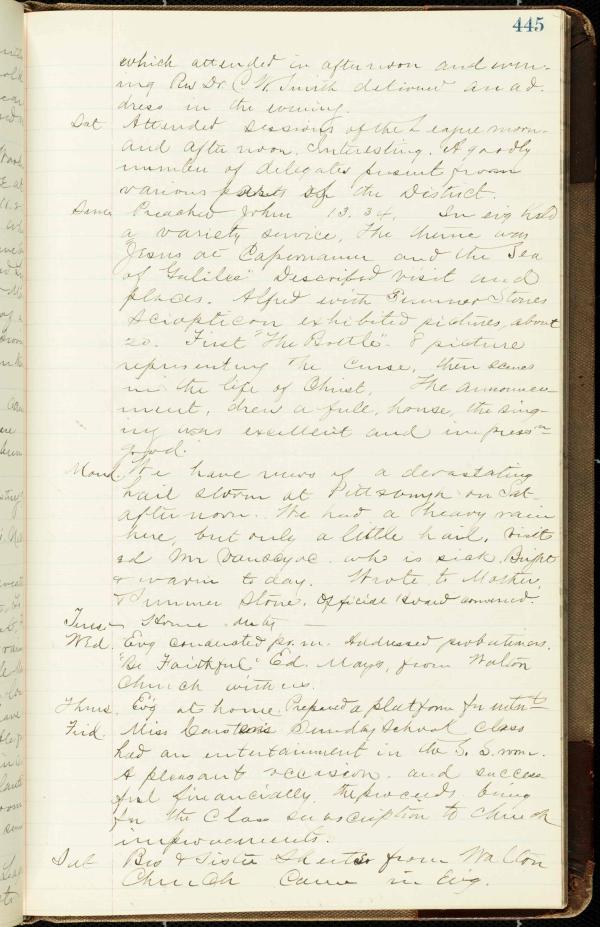 445
which attended in afternoon and even-
ing Rev Dr. C W. Smith delivered an ad-
dress in the evening.
Sat Attended sessions of the League morn-
and afternoon. Interesting. A goodly
number of delegates present from
various parts of the District.
Preached John 13.34. In evg held
a variety service, The theme was
Jesus at Capernaum and the Sea
of Galilee" Described visit and
places. Alfred with Summer Stones
Sciopticon exhibited pictures, about
20. First "The Bottle". 8 picture
representing the Curse, then scenes
in the life of Christ, The announce-
ment, drew a full, house, the sing-
ing was excellent and impress'n
good.
Mond. We have news of a devastating
hail storm at Pittsburgh on Sat-
afternoon. We had a heavy rain
here, but only a little hail. Visit
ed Mr who is sick. Bright
& warm to day. Wrote to Mother,
& Summer Stone. Official Board convened.
Tues- Home
Wed. Evg conducted pr. m. Addressed probationers.
"Be Faithful" Ed. Mays, from Walton
Church with us.
Thurs. Ev'g at home. Prepared a platform for
Frid. Miss Sunday School Class
had an entertainment in the S. S. room.
A pleasant occasion. and success
ful financially. the proceeds being
for the Class subscription to church
improvements.
Sat Bro & Sister from Walton
Church came in Ev'g.